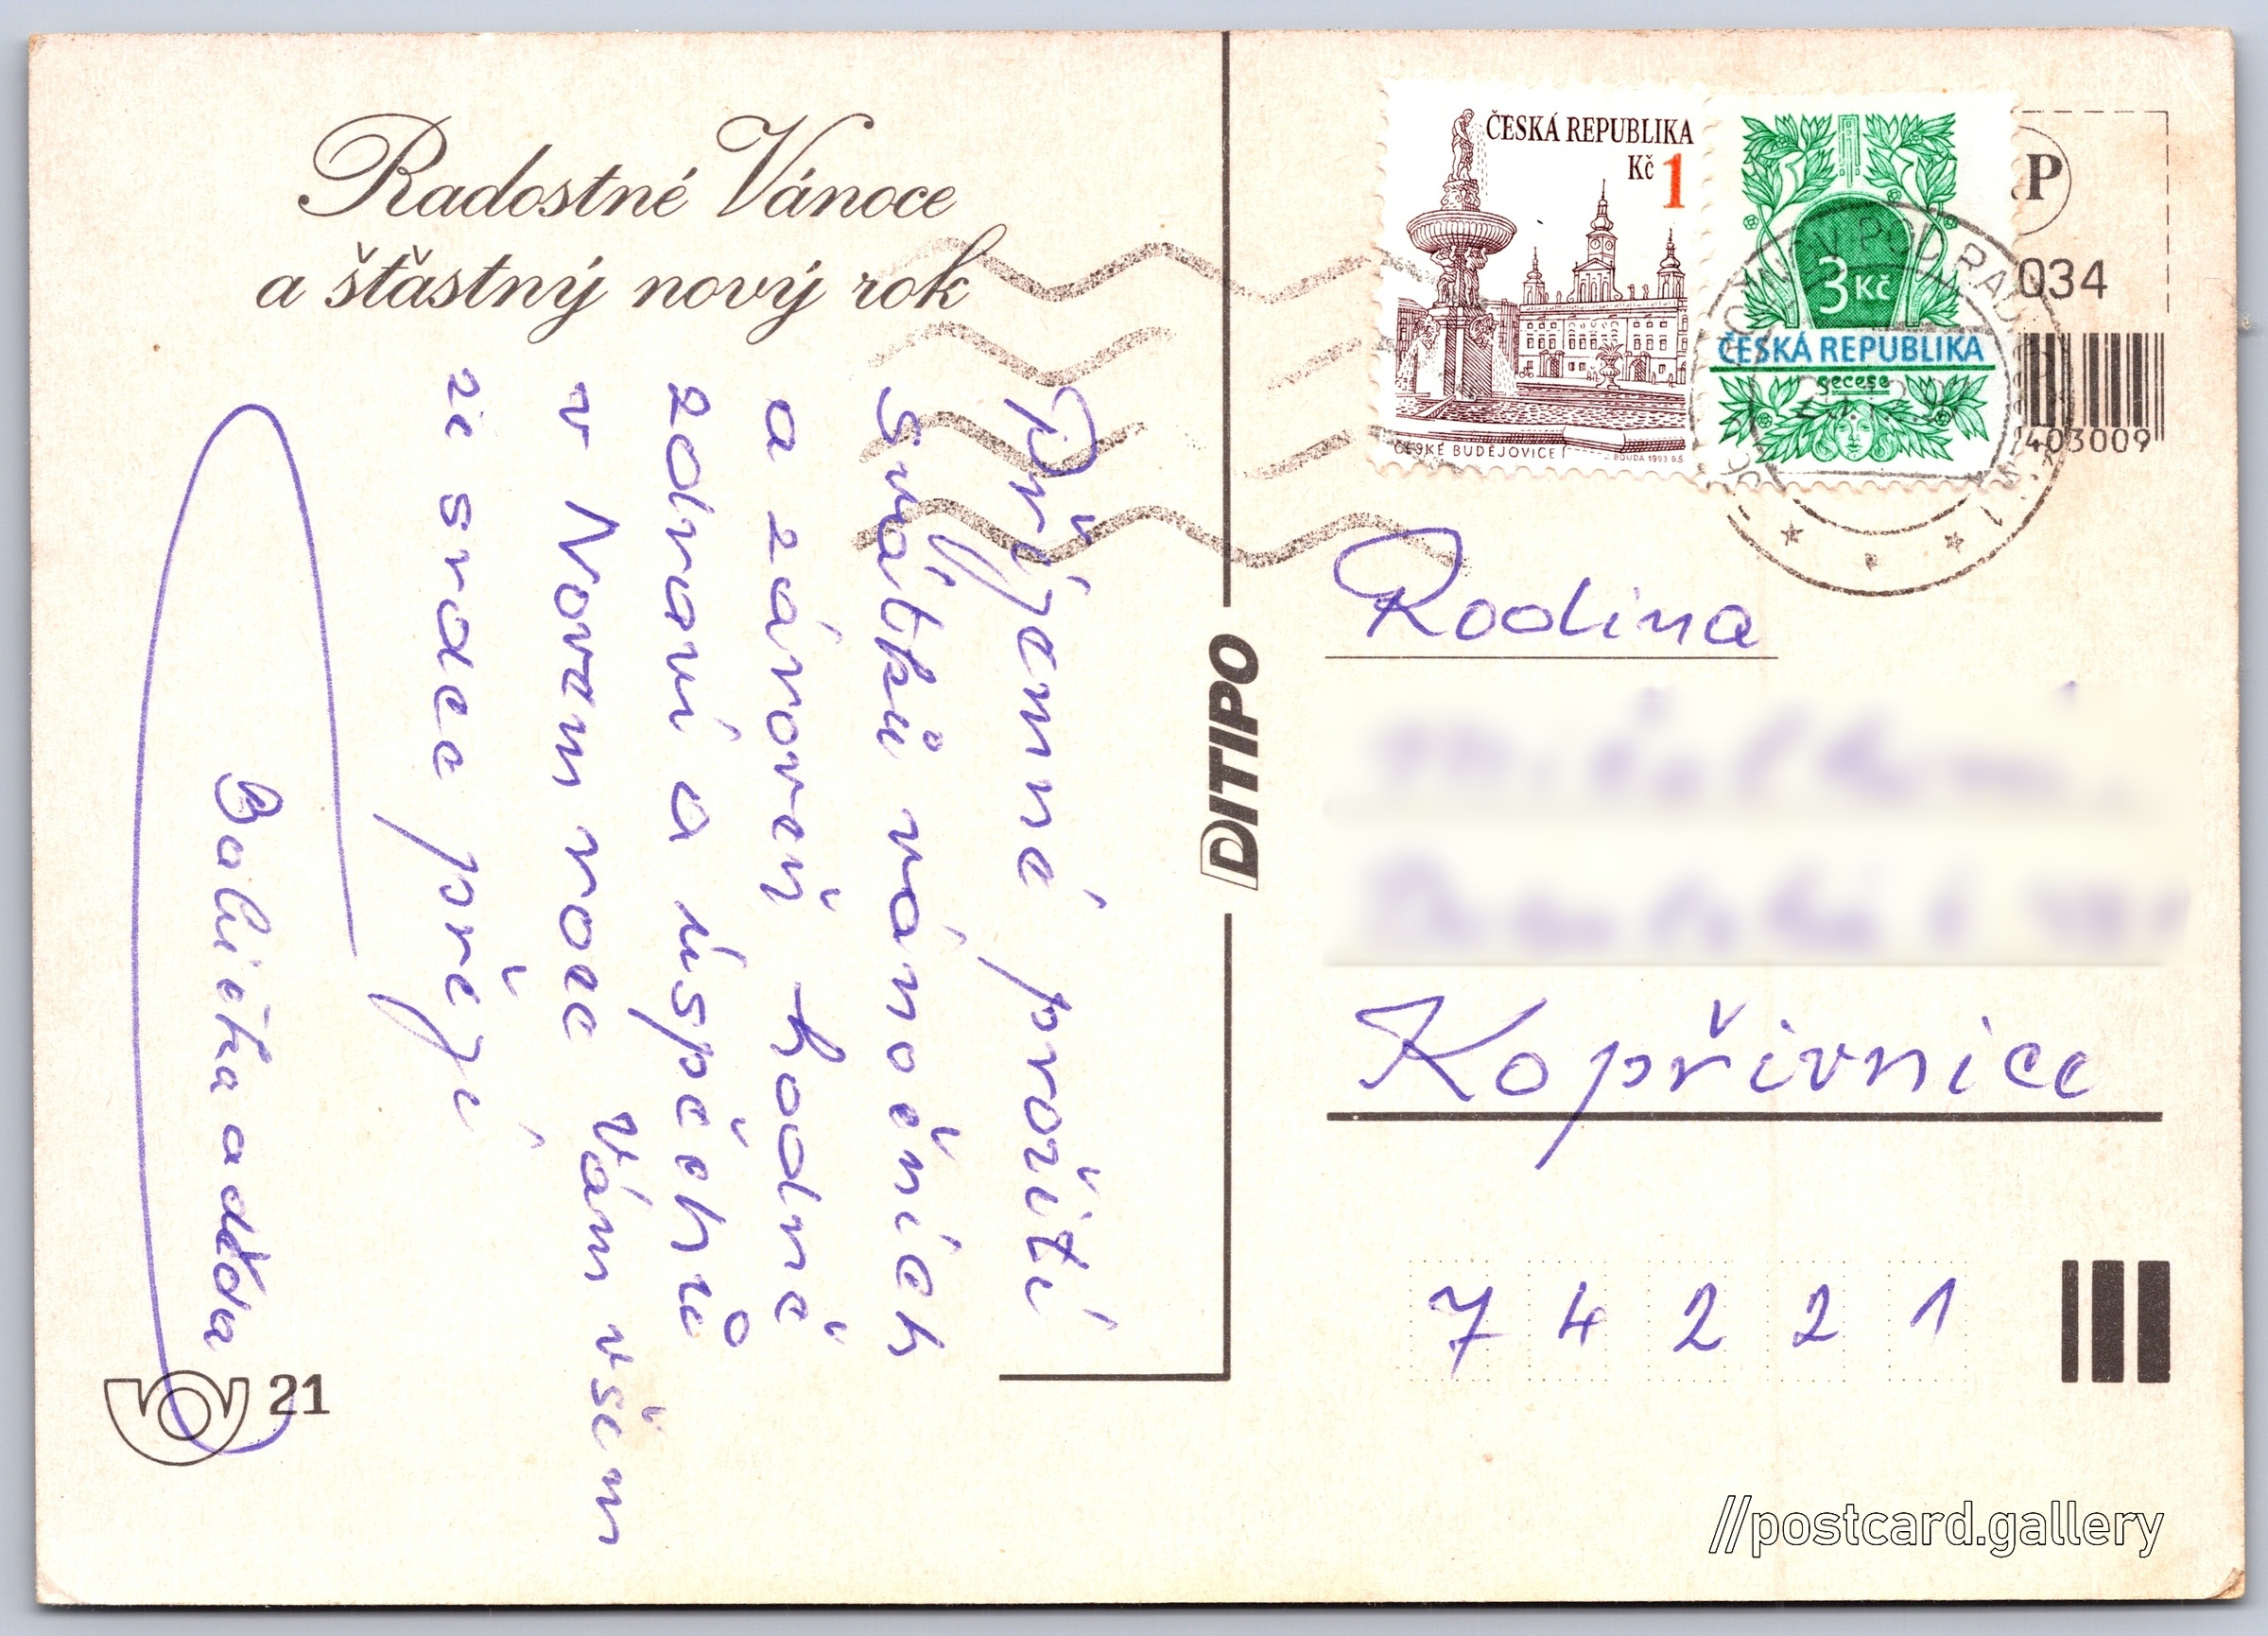 Radostné Vánoce
a šťastný nový rok
Příjemné prožití
svátků vánočních
a zároveň hodně
zdraví a úspěchů
v Novém roce Vám všem
ze srdce přejí
Babička a děda
21
DITIPO
ČESKÁ REPUBLIKA
Kč 1
ČESKÉ BUDĚJOVICE
BOUDA 1993 BŠ
3 Kč
ČESKÁ REPUBLIKA
secese
P
034
403009
Rodina
Kopřivnice
7 4 2 2 1
//postcard.gallery